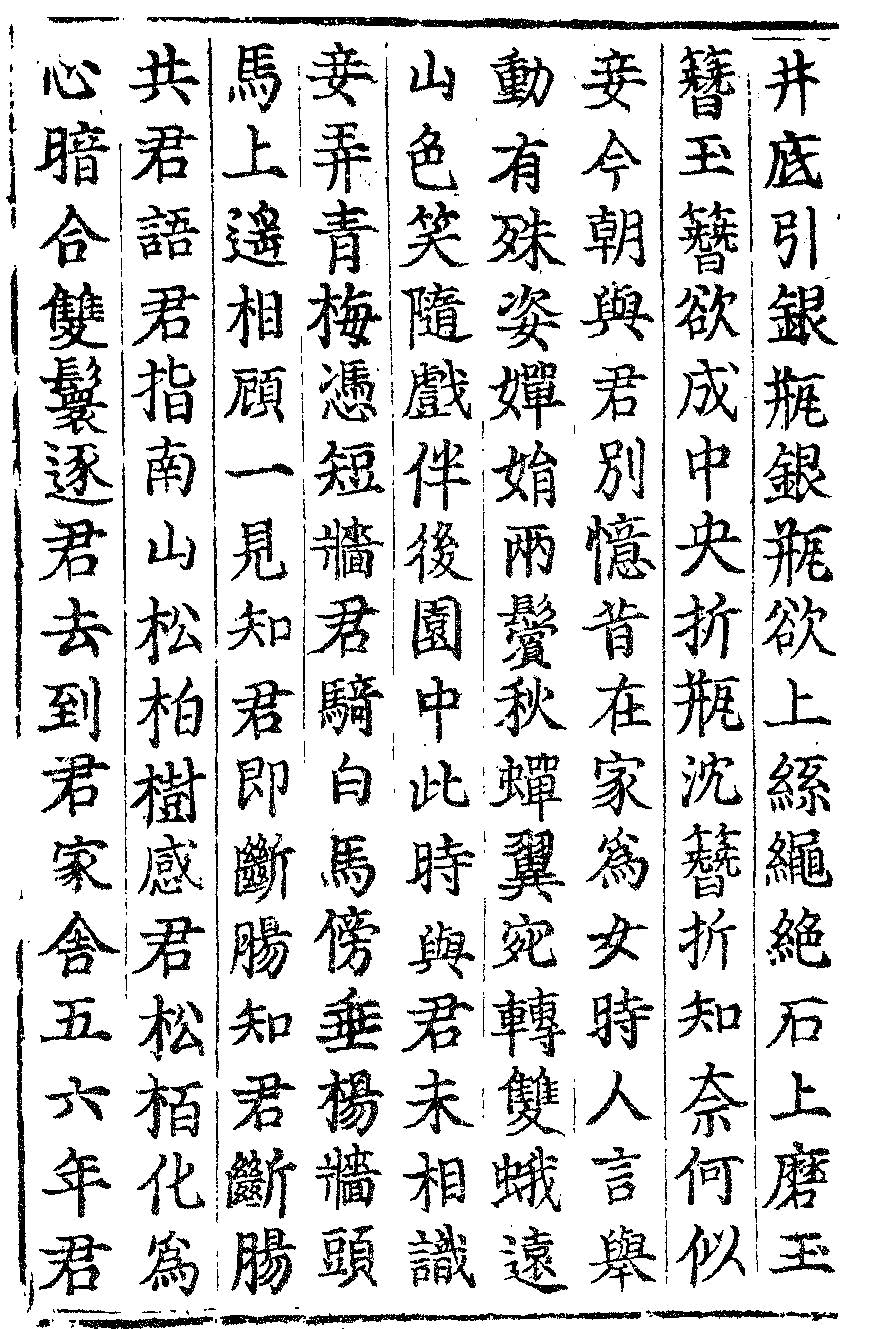 井底引銀瓶銀瓶欲上絲繩絶石上磨玉
簪玉簪欲成中央折瓶沈簪折知奈何似
妾今朝與君別憶昔在家爲女時人言舉
動有殊姿嬋娟兩鬢秋蟬翼宛轉雙蛾遠
山色笑隨戲伴後園中此時與君未相識
妾弄青梅憑短牆君騎白馬傍垂楊牆頭
馬上遥相顧一見知君即斷腸知君斷腸
共君語君指南山松柏樹感君松栢化爲
心暗合雙鬟逐君去到君家舎五六年君